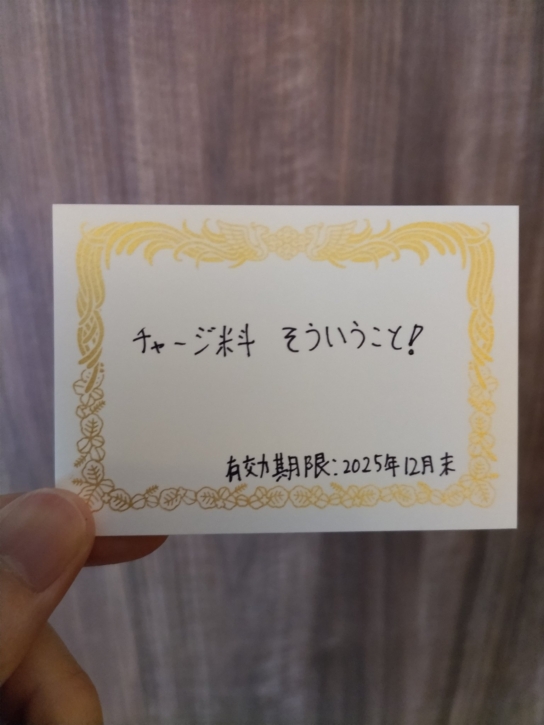 チャージ料 そういうこと!
有効期限:2025年12月末